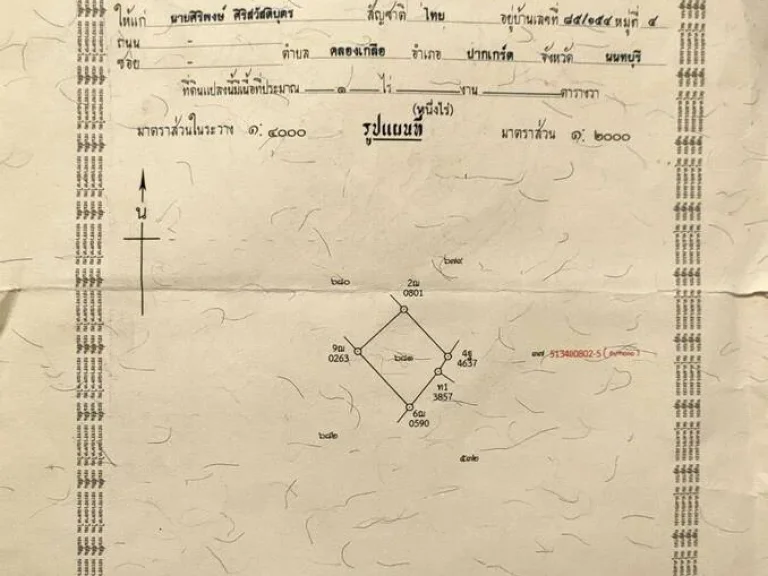 ให้แก่ นายศิริพงษ์ ศิริสวัสดิบุตร สัญชาติ ไทย อยู่บ้านเลขที่ ๘๕/๑๕๔ หมู่ที่ ๔
ถนน - ตำบล คลองเกลือ อำเภอ ปากเกร็ด จังหวัด นนทบุรี
ซอย -
ที่ดินแปลงนี้มีเนื้อที่ประมาณ ๑ ไร่ - งาน - ตารางวา
(หนึ่งไร่)
มาตราส่วนในระวาง ๑: ๔๐๐๐ รูปแผนที่ มาตราส่วน ๑: ๒๐๐๐
น
๒๗๙
๒๘๐
2ฌ
0801
9ฌ
0263
๒๘๑
4ฐ
4637
๓๗ 5134II0802-5
ท1
3857
6ฌ
0590
๒๘๒
๕๓๒